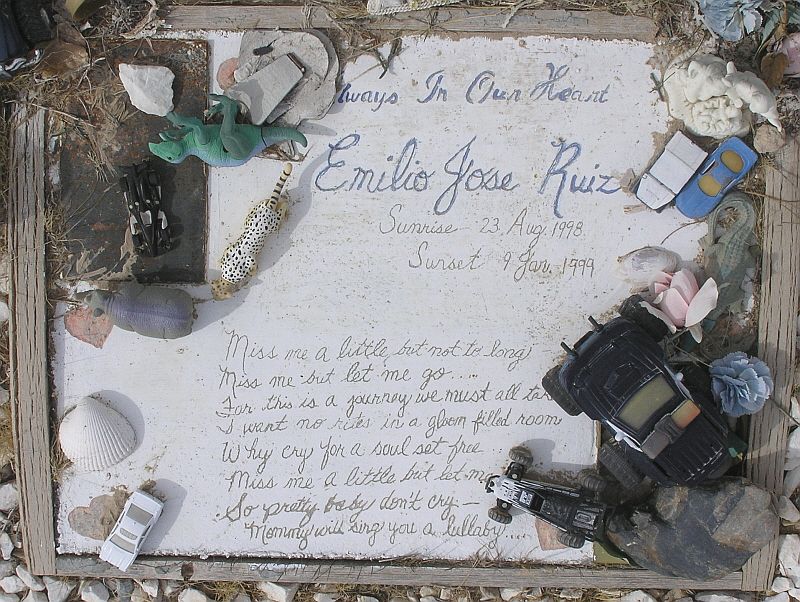 lways In Our Heart
Emilio Jose Ruiz
Sunrise 23 Aug. 1998
Sunset 9 Jan. 1999
Miss me a little but not to long
Miss me but let me go....
For this is a journey we must all tak
I want no rites in a gloom filled room
Why cry for a soul set free
Miss me a little but let m
So pretty baby don't cry —
Mommy will sing you a lullaby....